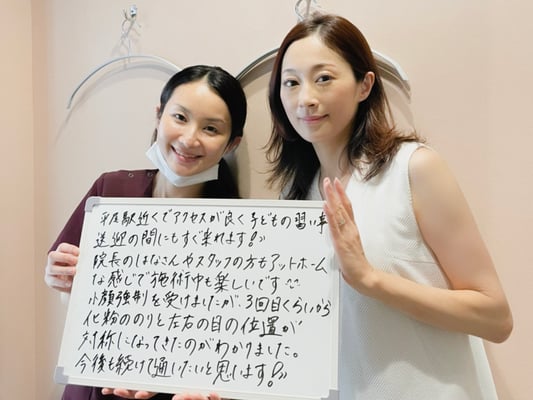 平尾駅近くでアクセスが良く子どもの習い事
送迎の間にもすぐ来れます!♪
院長のはなさんやスタッフの方もアットホーム
な感じで施術中も楽しいです
小顔強制を受けましたが、3回目くらいから
化粉ののりと左右の目の位置が
対称になってきたのがわかりました。
今後も続けて通いたいと思います!♪